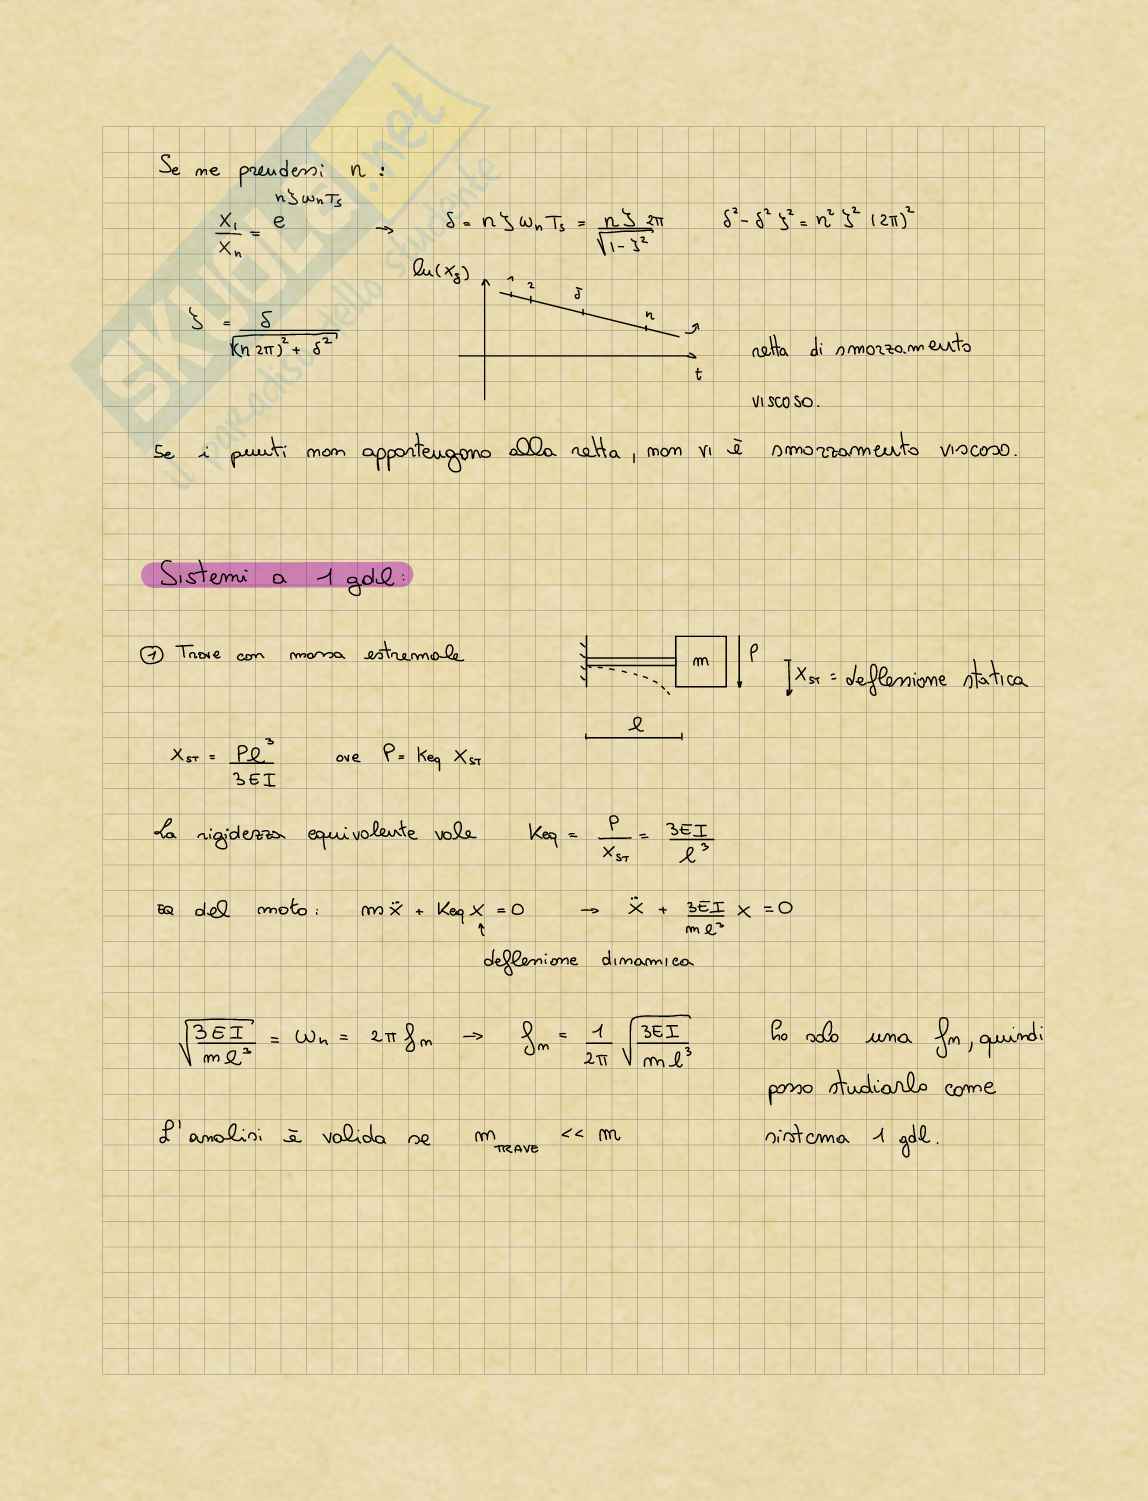 SKUOLA.net
il paradiso dello studente
Se ne prendessi n :
X₁/Xₙ = e^(nζωₙTₛ) → δ = nζωₙTₛ = nζ2π/√(1-ζ²) δ² - δ²ζ² = n²ζ²(2π)²
ln(Xⱼ) 1 2 j n
ζ = δ/√((n2π)² + δ²)
t
retta di smorzamento
viscoso.
Se i punti non appartengono alla retta, non vi è smorzamento viscoso.
Sistemi a 1 gdl:
① Trave con massa estremale
m P X_ST = deflessione statica
l
X_ST = Pl³/3EI ove P = Keq X_ST
La rigidezza equivalente vale Keq = P/X_ST = 3EI/l³
EQ del moto: mẍ + Keq x = 0 → ẍ + 3EI/ml³ x = 0
↑
deflessione dinamica
√(3EI/ml³) = ωₙ = 2πfₙ → fₙ = 1/2π √(3EI/ml³) Ho solo una fₙ, quindi
posso studiarlo come
L'analisi è valida se m_TRAVE << m sistema 1 gdl.